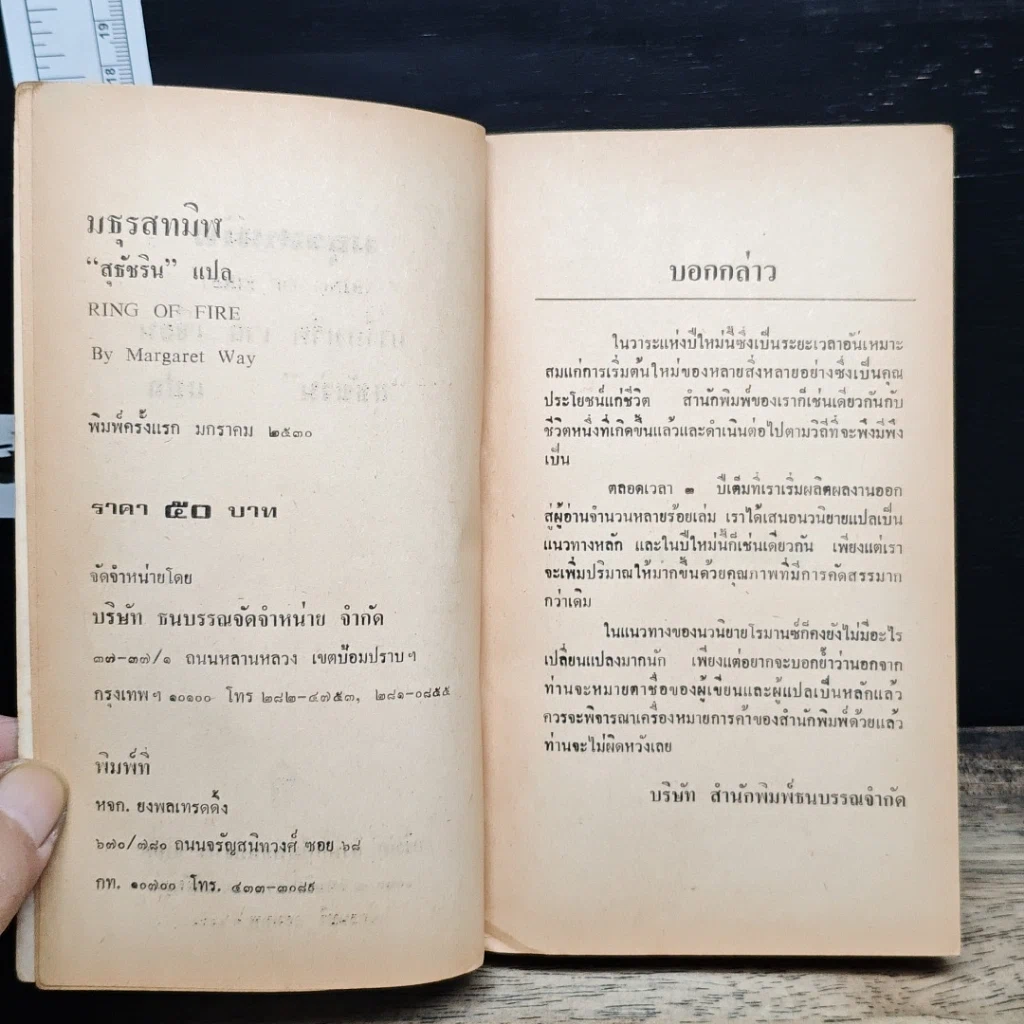 19
18
มธุรสทมิฬ
“สุธัชริน” แปล
RING OF FIRE
By Margaret Way
พิมพ์ครั้งแรก มกราคม ๒๕๓๐
ราคา ๕๐ บาท
จัดจำหน่ายโดย
บริษัท ธนบรรณจัดจำหน่าย จำกัด
๓๗-๓๗/๑ ถนนหลานหลวง เขตป้อมปราบฯ
กรุงเทพฯ ๑๐๑๐๐ โทร ๒๘๒-๔๗๕๓, ๒๘๑-๐๘๕๕
พิมพ์ที่
หจก. ยงพลเทรดดิ้ง
๖๗๐/๗๘๐ ถนนจรัญสนิทวงศ์ ซอย ๖๘
กท. ๑๐๗๐๐ โทร. ๔๓๓-๓๐๘๙
บอกกล่าว
ในวาระแห่งปีใหม่นี้ซึ่งเป็นระยะเวลาอันเหมาะ
สมแก่การเริ่มต้นใหม่ของหลายสิ่งหลายอย่างซึ่งเป็นคุณ
ประโยชน์แก่ชีวิต สำนักพิมพ์ของเราก็เช่นเดียวกันกับ
ชีวิตหนึ่งที่เกิดขึ้นแล้วและดำเนินต่อไปตามวิถีที่จะพึงมีพึง
เป็น
ตลอดเวลา ๓ ปีเต็มที่เราเริ่มผลิตผลงานออก
สู่ผู้อ่านจำนวนหลายร้อยเล่ม เราได้เสนอนวนิยายแปลเป็น
แนวทางหลัก และในปีใหม่นี้ก็เช่นเดียวกัน เพียงแต่เรา
จะเพิ่มปริมาณให้มากขึ้นด้วยคุณภาพที่มีการคัดสรรมาก
กว่าเดิม
ในแนวทางของนวนิยายโรมานซ์ก็คงยังไม่มีอะไร
เปลี่ยนแปลงมากนัก เพียงแต่อยากจะบอกย้ำว่านอกจาก
ท่านจะหมายตาชื่อของผู้เขียนและผู้แปลเป็นหลักแล้ว
ควรจะพิจารณาเครื่องหมายการค้าของสำนักพิมพ์ด้วยแล้ว
ท่านจะไม่ผิดหวังเลย
บริษัท สำนักพิมพ์ธนบรรณจำกัด